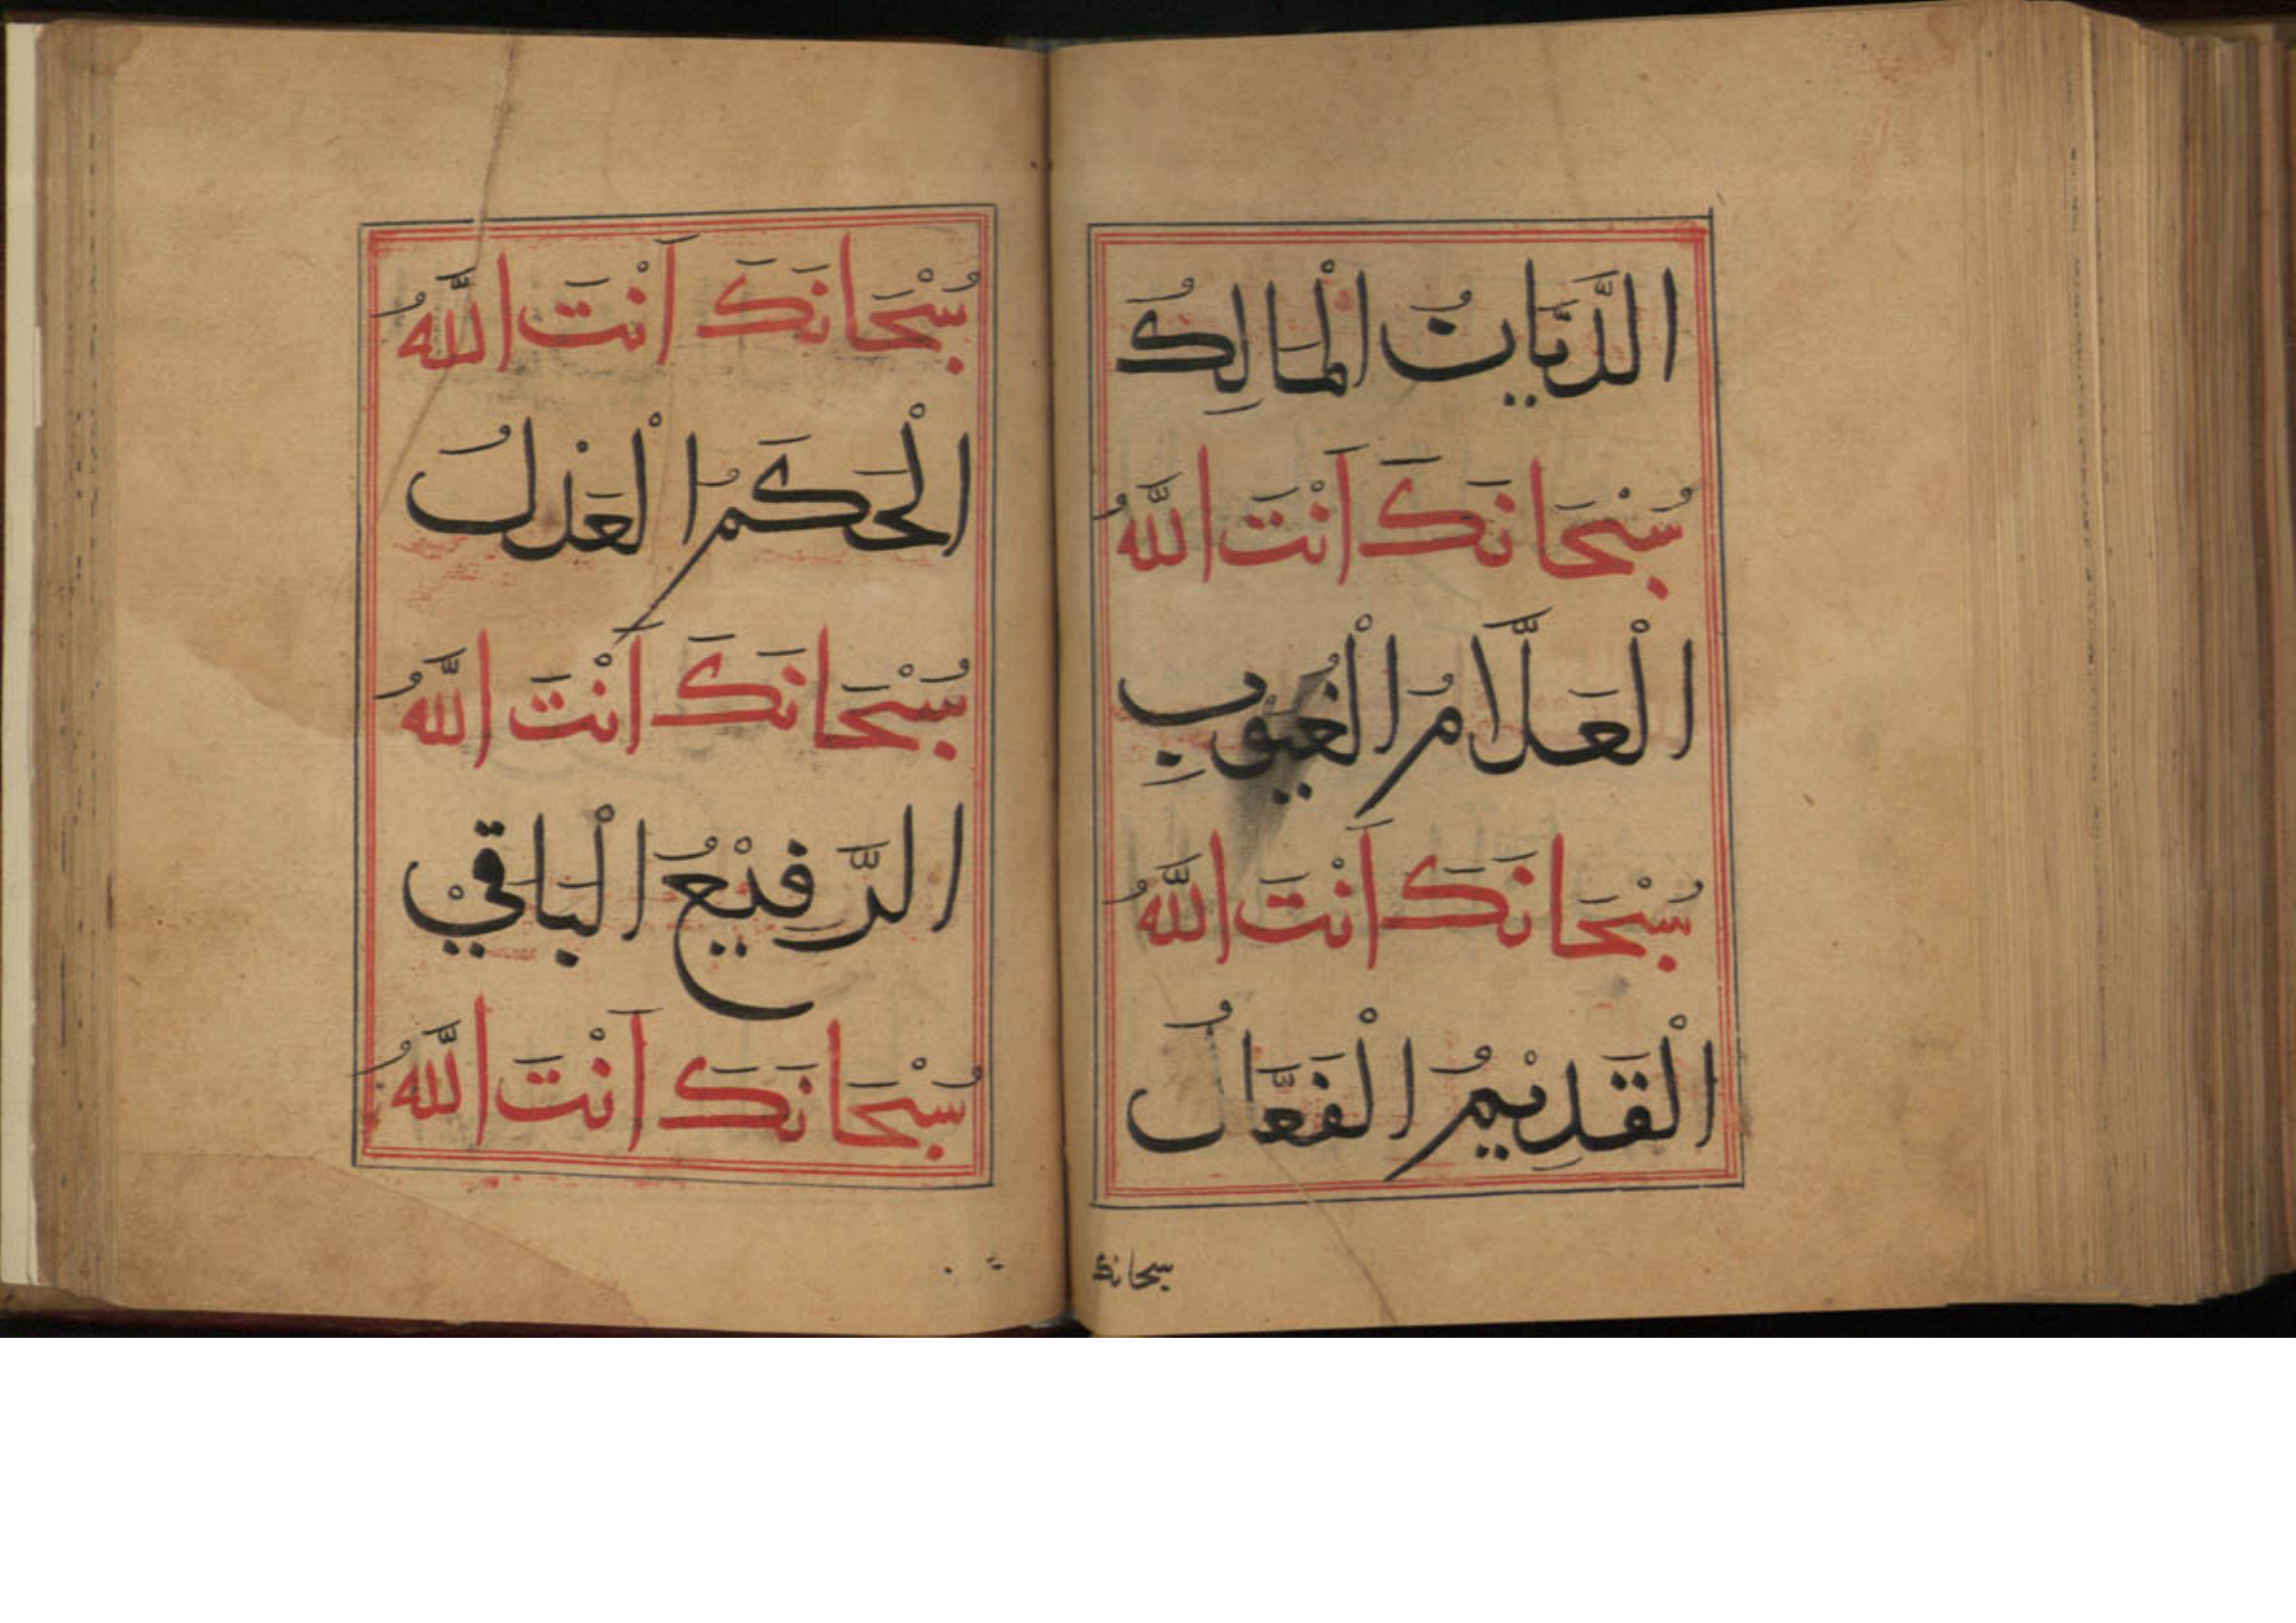 الدَّيَّانُ الْمَالِكُ
سُبْحَانَكَ اَنْتَ اللَّهُ
الْعَلَّامُ الْغُيُوبِ
سُبْحَانَكَ اَنْتَ اللَّهُ
الْقَدِيْمُ الْفَعَّالُ
سبحانك
سُبْحَانَكَ اَنْتَ اللَّهُ
الْحَكَمُ الْعَدْلُ
سُبْحَانَكَ اَنْتَ اللَّهُ
الرَّفِيْعُ الْبَاقِيْ
سُبْحَانَكَ اَنْتَ اللَّهُ